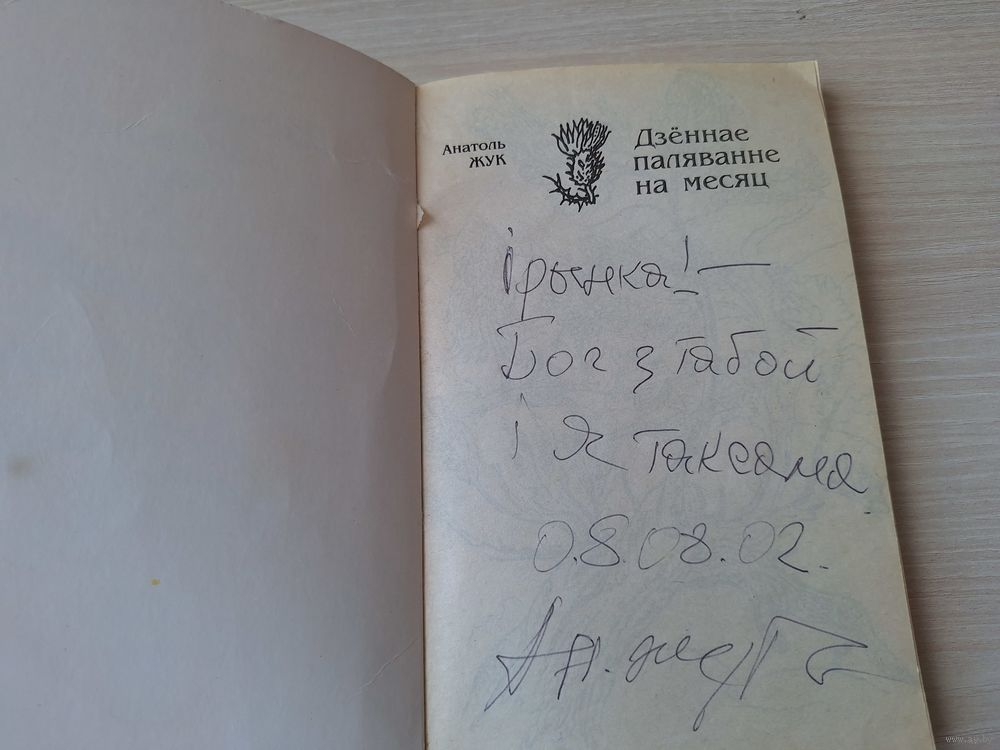 Анатоль
ЖУК
Дзённае
паляванне
на месяц
Ірынка! —
Бог з табой
і я таксама.
08.08.02.
www.ay.by